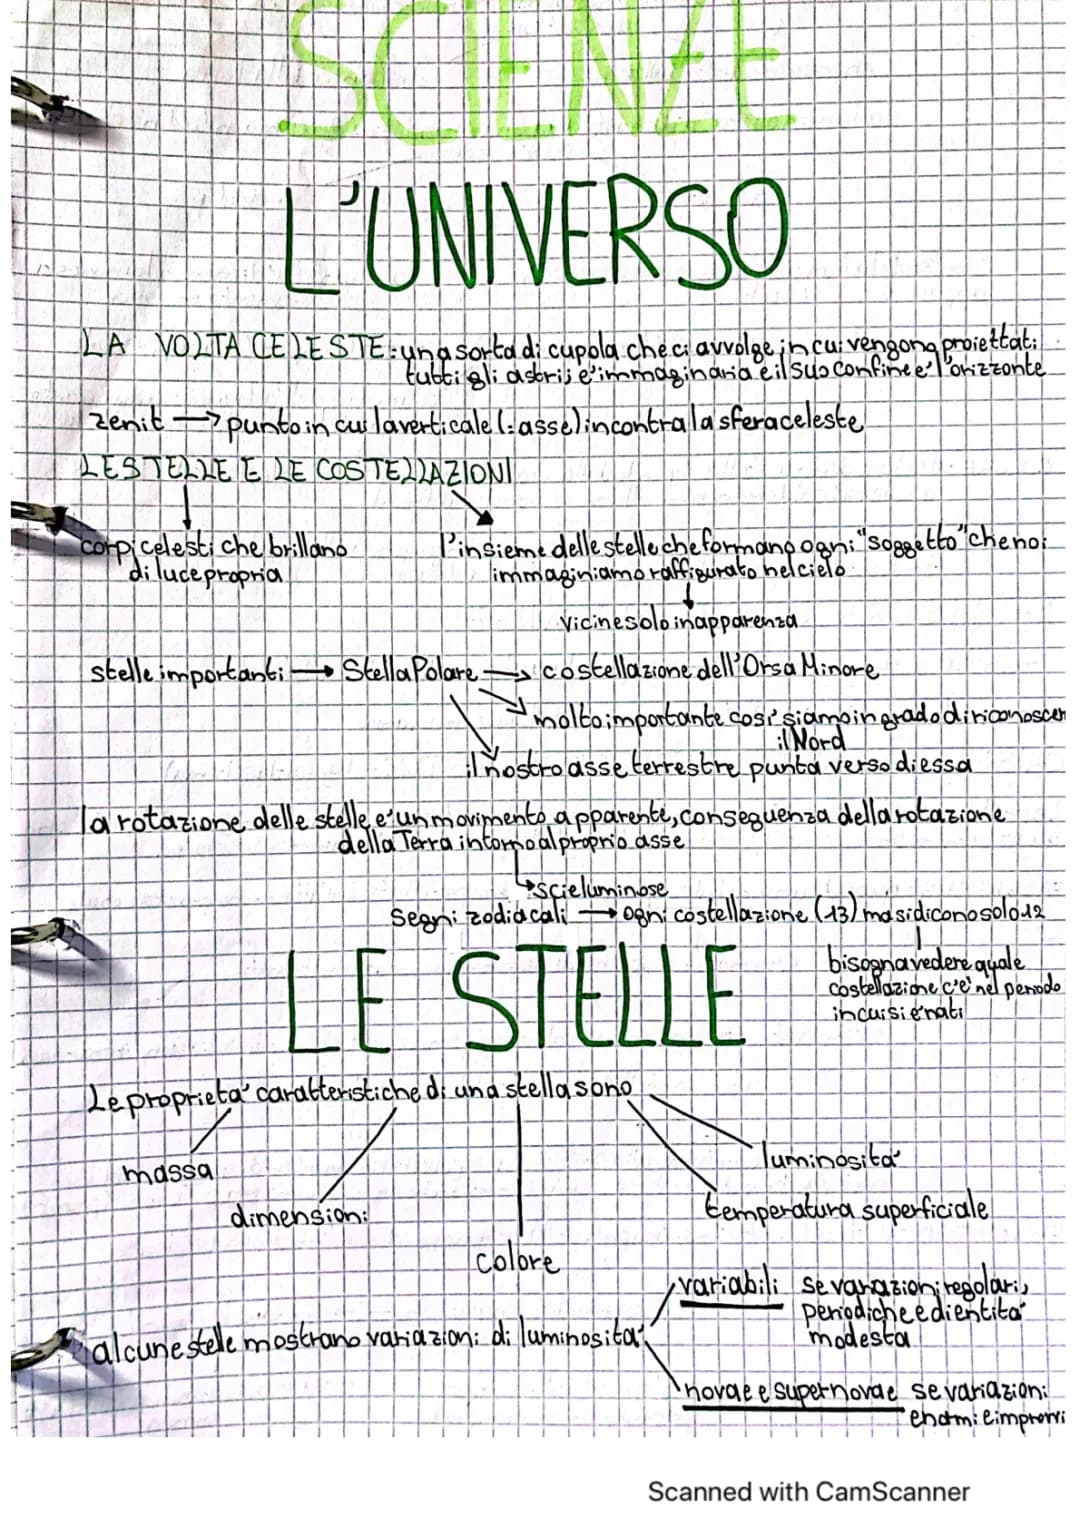 SCIENZE
L'UNIVERSO
LA VOLTA CELESTE: una sorta di cupola che ci avvolge, in cui vengono proiettati
tutti gli astri; e' immaginaria e il suo confine e' l'orizzonte
zenit → punto in cui la verticale (= asse) incontra la sfera celeste
LE STELLE E LE COSTELLAZIONI
corpi celesti che brillano
di luce propria
l'insieme delle stelle che formano ogni "soggetto" che noi
immaginiamo raffigurato nel cielo
vicine solo in apparenza
stelle importanti → Stella Polare → costellazione dell'Orsa Minore
molto importante cosi' siamo in grado di riconoscer
il Nord
il nostro asse terrestre punta verso di essa
la rotazione delle stelle e' un movimento apparente, conseguenza della rotazione
della Terra intorno al proprio asse
scie luminose
segni zodiacali → ogni costellazione (13) ma si dicono solo 12
bisogna vedere quale
costellazione c'e' nel periodo
in cui si e' nati
LE STELLE
Le proprieta' caratteristiche di una stella sono
massa
dimensioni
colore
temperatura superficiale
luminosita'
alcune stelle mostrano variazioni di luminosita'
variabili se variazioni regolari,
periodiche e di entita'
modesta
novae e supernovae se variazioni
enormi e improvvi
Scanned with CamScanner